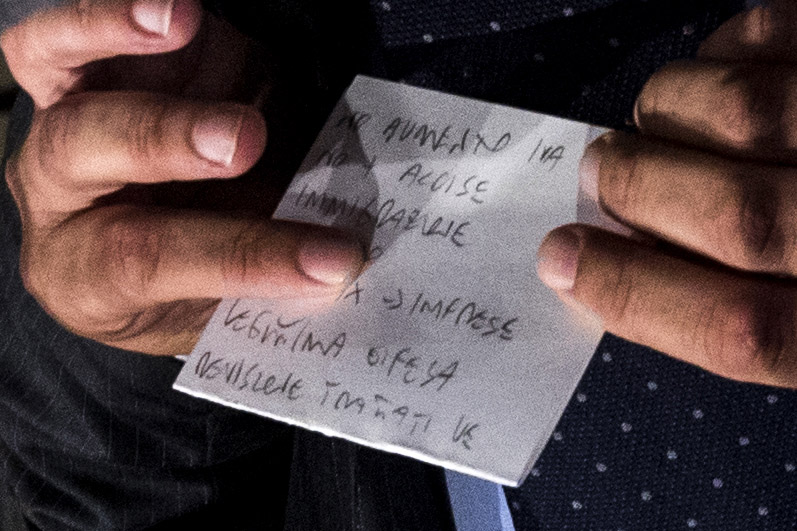 NO AUMENTO IVA
NO ACCISE
IMMIGRAZIONE
-> IMPRESE
LEGITTIMA DIFESA
REVISIONE TRATTATI UE